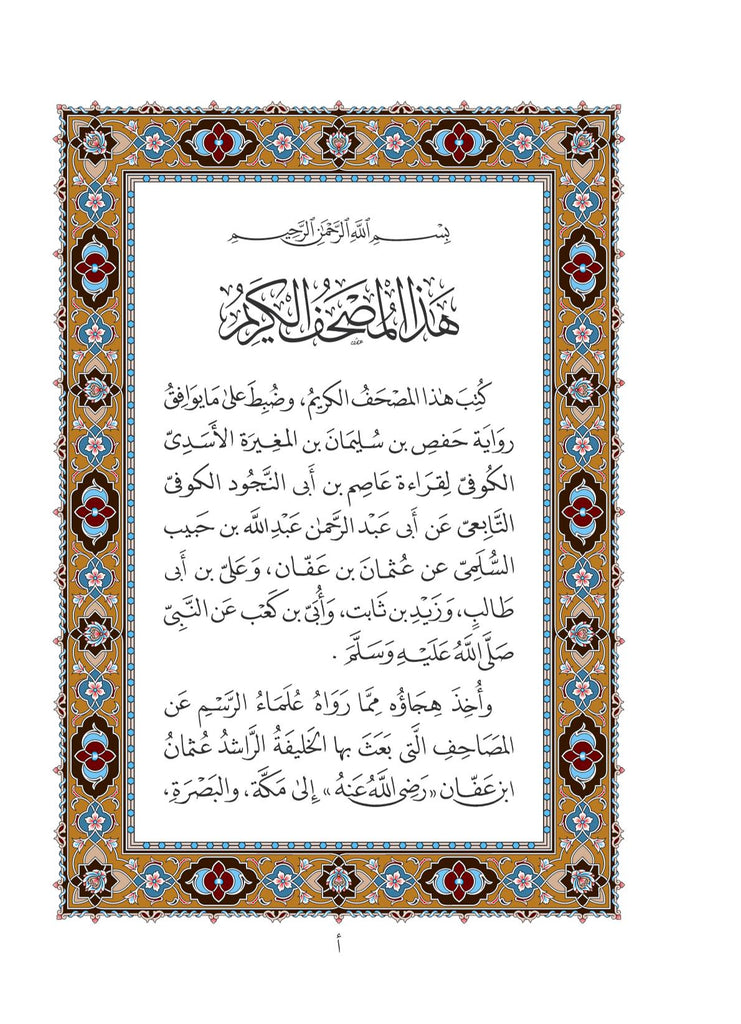 بِسْمِ ٱللَّهِ ٱلرَّحْمَٰنِ ٱلرَّحِيمِ
هَٰذَا الْمُصْحَفُ الْكَرِيمُ
كُتِبَ هٰذا المصْحَفُ الكريمُ، وضُبِطَ على مَا يوَافِقُ
روايَة حَفصِ بن سُليمَانَ بن المغِيرَة الأسَدِىّ
الكُوفىّ لِقرَاءة عَاصِم بن أبى النَّجُود الكوفىّ
التَّابِعىّ عَن أبى عَبد الرَّحمٰن عَبدِ اللَّه بن حَبيب
السُّلَمِىّ عن عُثمَانَ بن عَفّان، وَعَلىّ بن أبى
طَالبٍ، وَزَيْدِ بن ثَابت، وأُبَىّ بن كَعْب عَن النَّبِىّ
صَلَّى اللَّهُ عَلَيْهِ وَسَلَّمَ .
وأُخِذَ هِجَاؤُه مِمَّا رَوَاهُ عُلَمَاءُ الرَّسْمِ عَن
المصَاحِفِ الَّتى بَعَثَ بها الخَليفَةُ الرَّاشدُ عُثمانُ
ابن عَفّان «رَضِى اللَّهُ عَنهُ» إلىٰ مَكَّة، والبَصْرَةِ،
أ